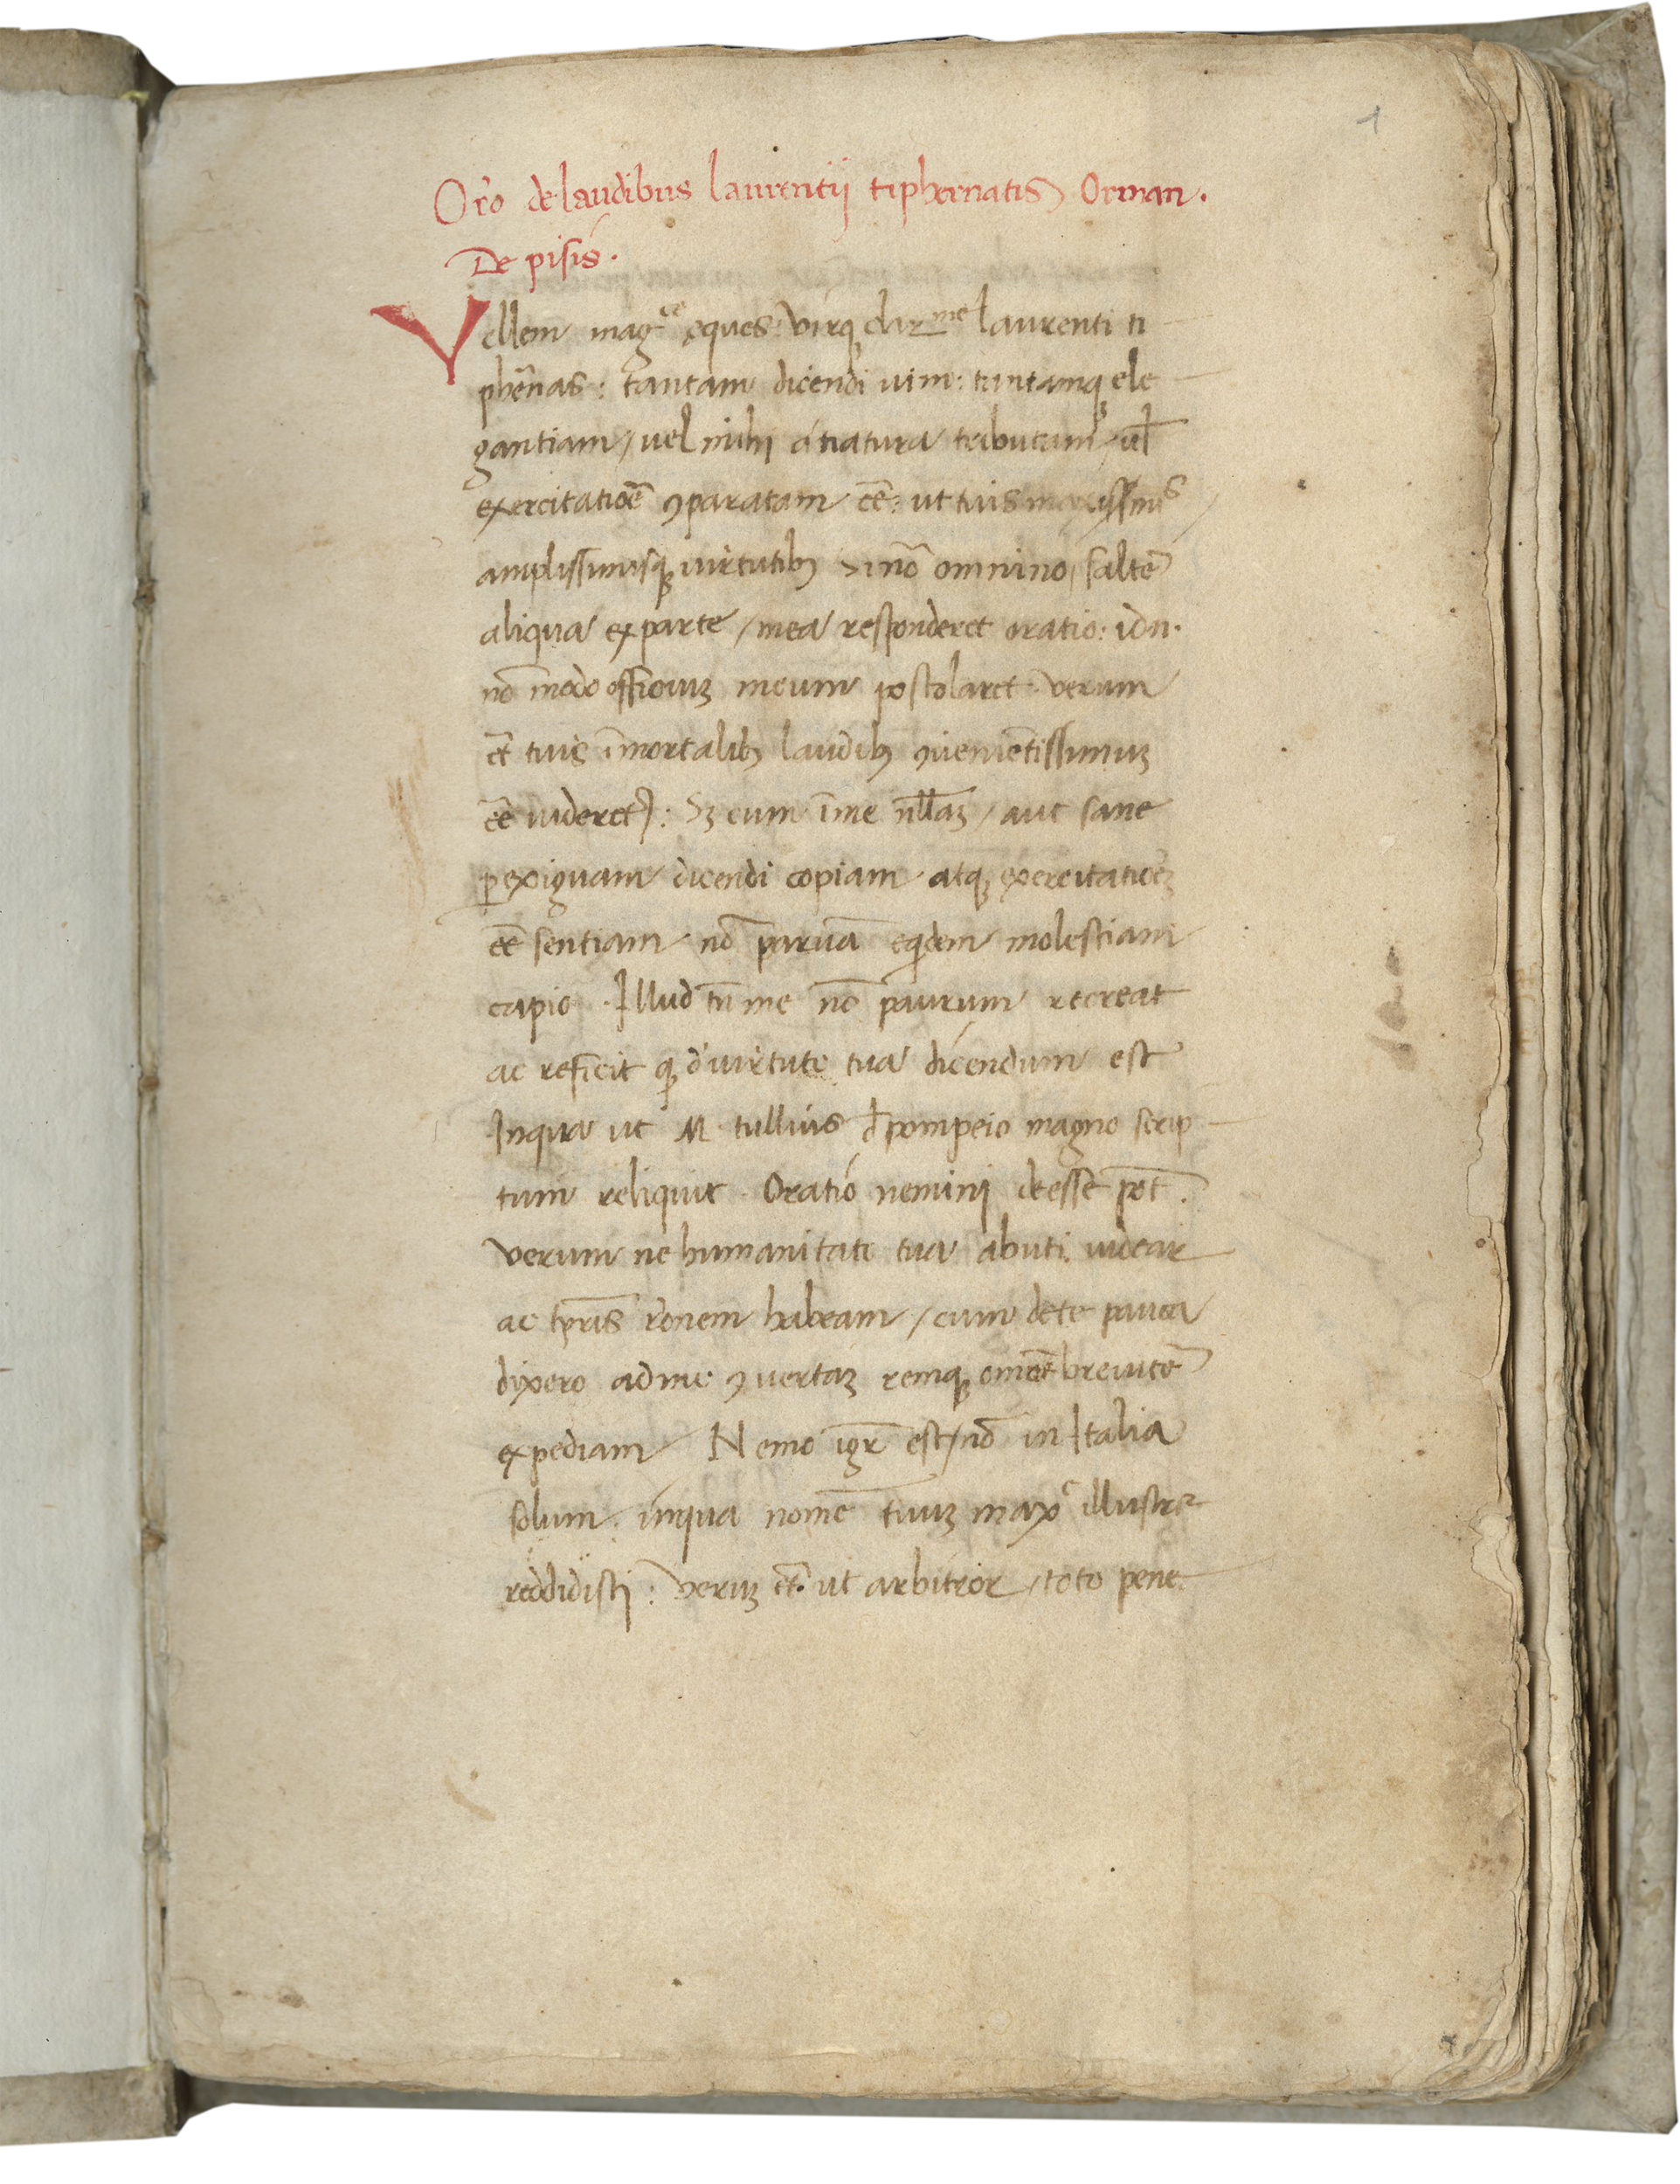 1
Or̄o de laudibus laurentii tiphernatis Orman.
De pisis.
Vellem mag.ce eques: virq; clar.me laurenti ti
phērnas: tantam dicendi uim: tantamq; ele
gantiam / uel mihi a natura tributam / ul̄
exercitatiōē ꝯparatam eē̄: ut tuis
amplissimisq; uirtutib; si nō omnino / saltē
aliqua ex parte / mea responderet oratio: id n.
nō modo officiuꝫ meum postolaret verum
et̄ tuis īmortalib; laudib; ꝯuenientissimuꝫ
eē̄ uideret᷑: Sꝫ cum ī me nll̄aꝫ / aut sane
ꝑexiguam dicendi copiam atq; exercitatiōeꝫ
eē̄ sentiam nō paruā eqdem molestiam
capio. Illud tn̄ me nō paurum recreat
ac reficit q; d̄ uirtute tua dicendum est
Inqua ut M. tullius d̄ pompeio magno scrip
tum reliquit. Oratio nemini deesse pōt.
verum ne humanitate tua abuti uidear
ac tp̄ris rōnem habeam / cum de te pauca
dixero ad me ꝯuertaꝫ remq; omēꝫ breuitē
expediam Nemo igr̄ est / nō in Italia
solum. inqua nomē tuuꝫ maxe illustre
reddidisti: veruꝫ et̄. ut arbitror / toto pene